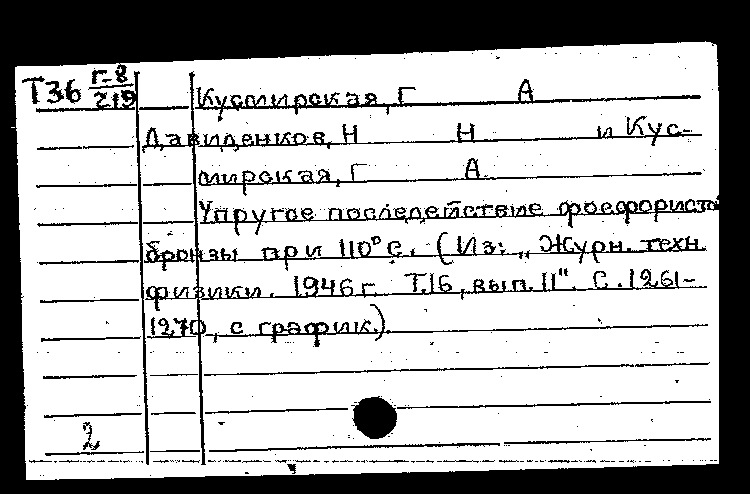 Т36 Г-8/219 Кусмирская, Г А
Давиденков, Н Н и Кус-
мирская, Г А
Упругое последействие фосфористой
бронзы при 110°С. (Из: „Журн. техн.
физики. 1946 г. Т.16, вып. 11". С. 1261-
1270, с график.).
2